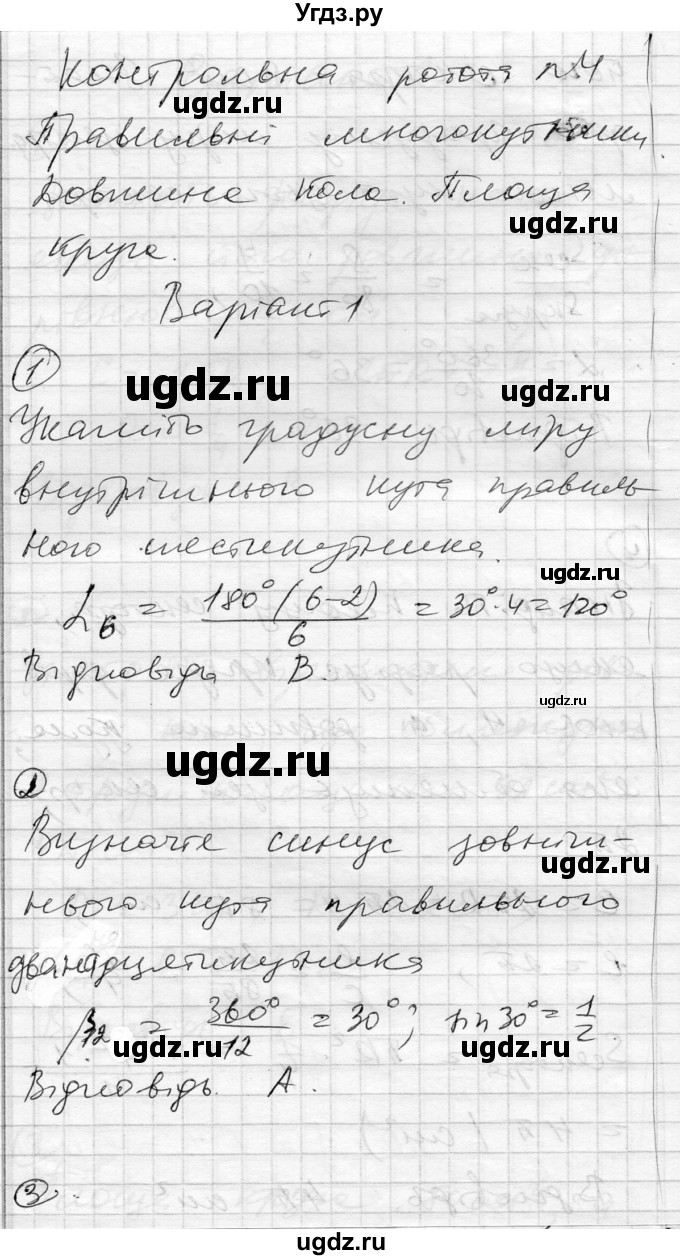 Угдз.ру
Контрольна робота №4
ugdz.ru
Правильні многокутники.
Довжина кола. Площа
ugdz.ru
круга.
Варіант 1
1
ugdz.ru
ugdz.ru
Укажіть градусну міру
внутрішнього кута правиль-
ного шестикутника.
ugdz.ru
α₆ = 180°(6-2)/6 = 30°·4 = 120°
Відповідь В.
ugdz.ru
ugdz.ru
2
Визначте синус зовніш-
ugdz.ru
нього кута правильного
дванадцятикутника
β₁₂ = 360°/12 = 30°; sin 30° = 1/2.
ugdz.ru ugdz.ru
Відповідь. А.
3.
ugdz.ru